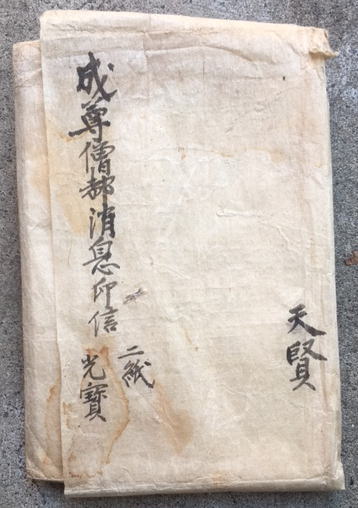 天賢
二紙
成尊僧都消息印信 光寶